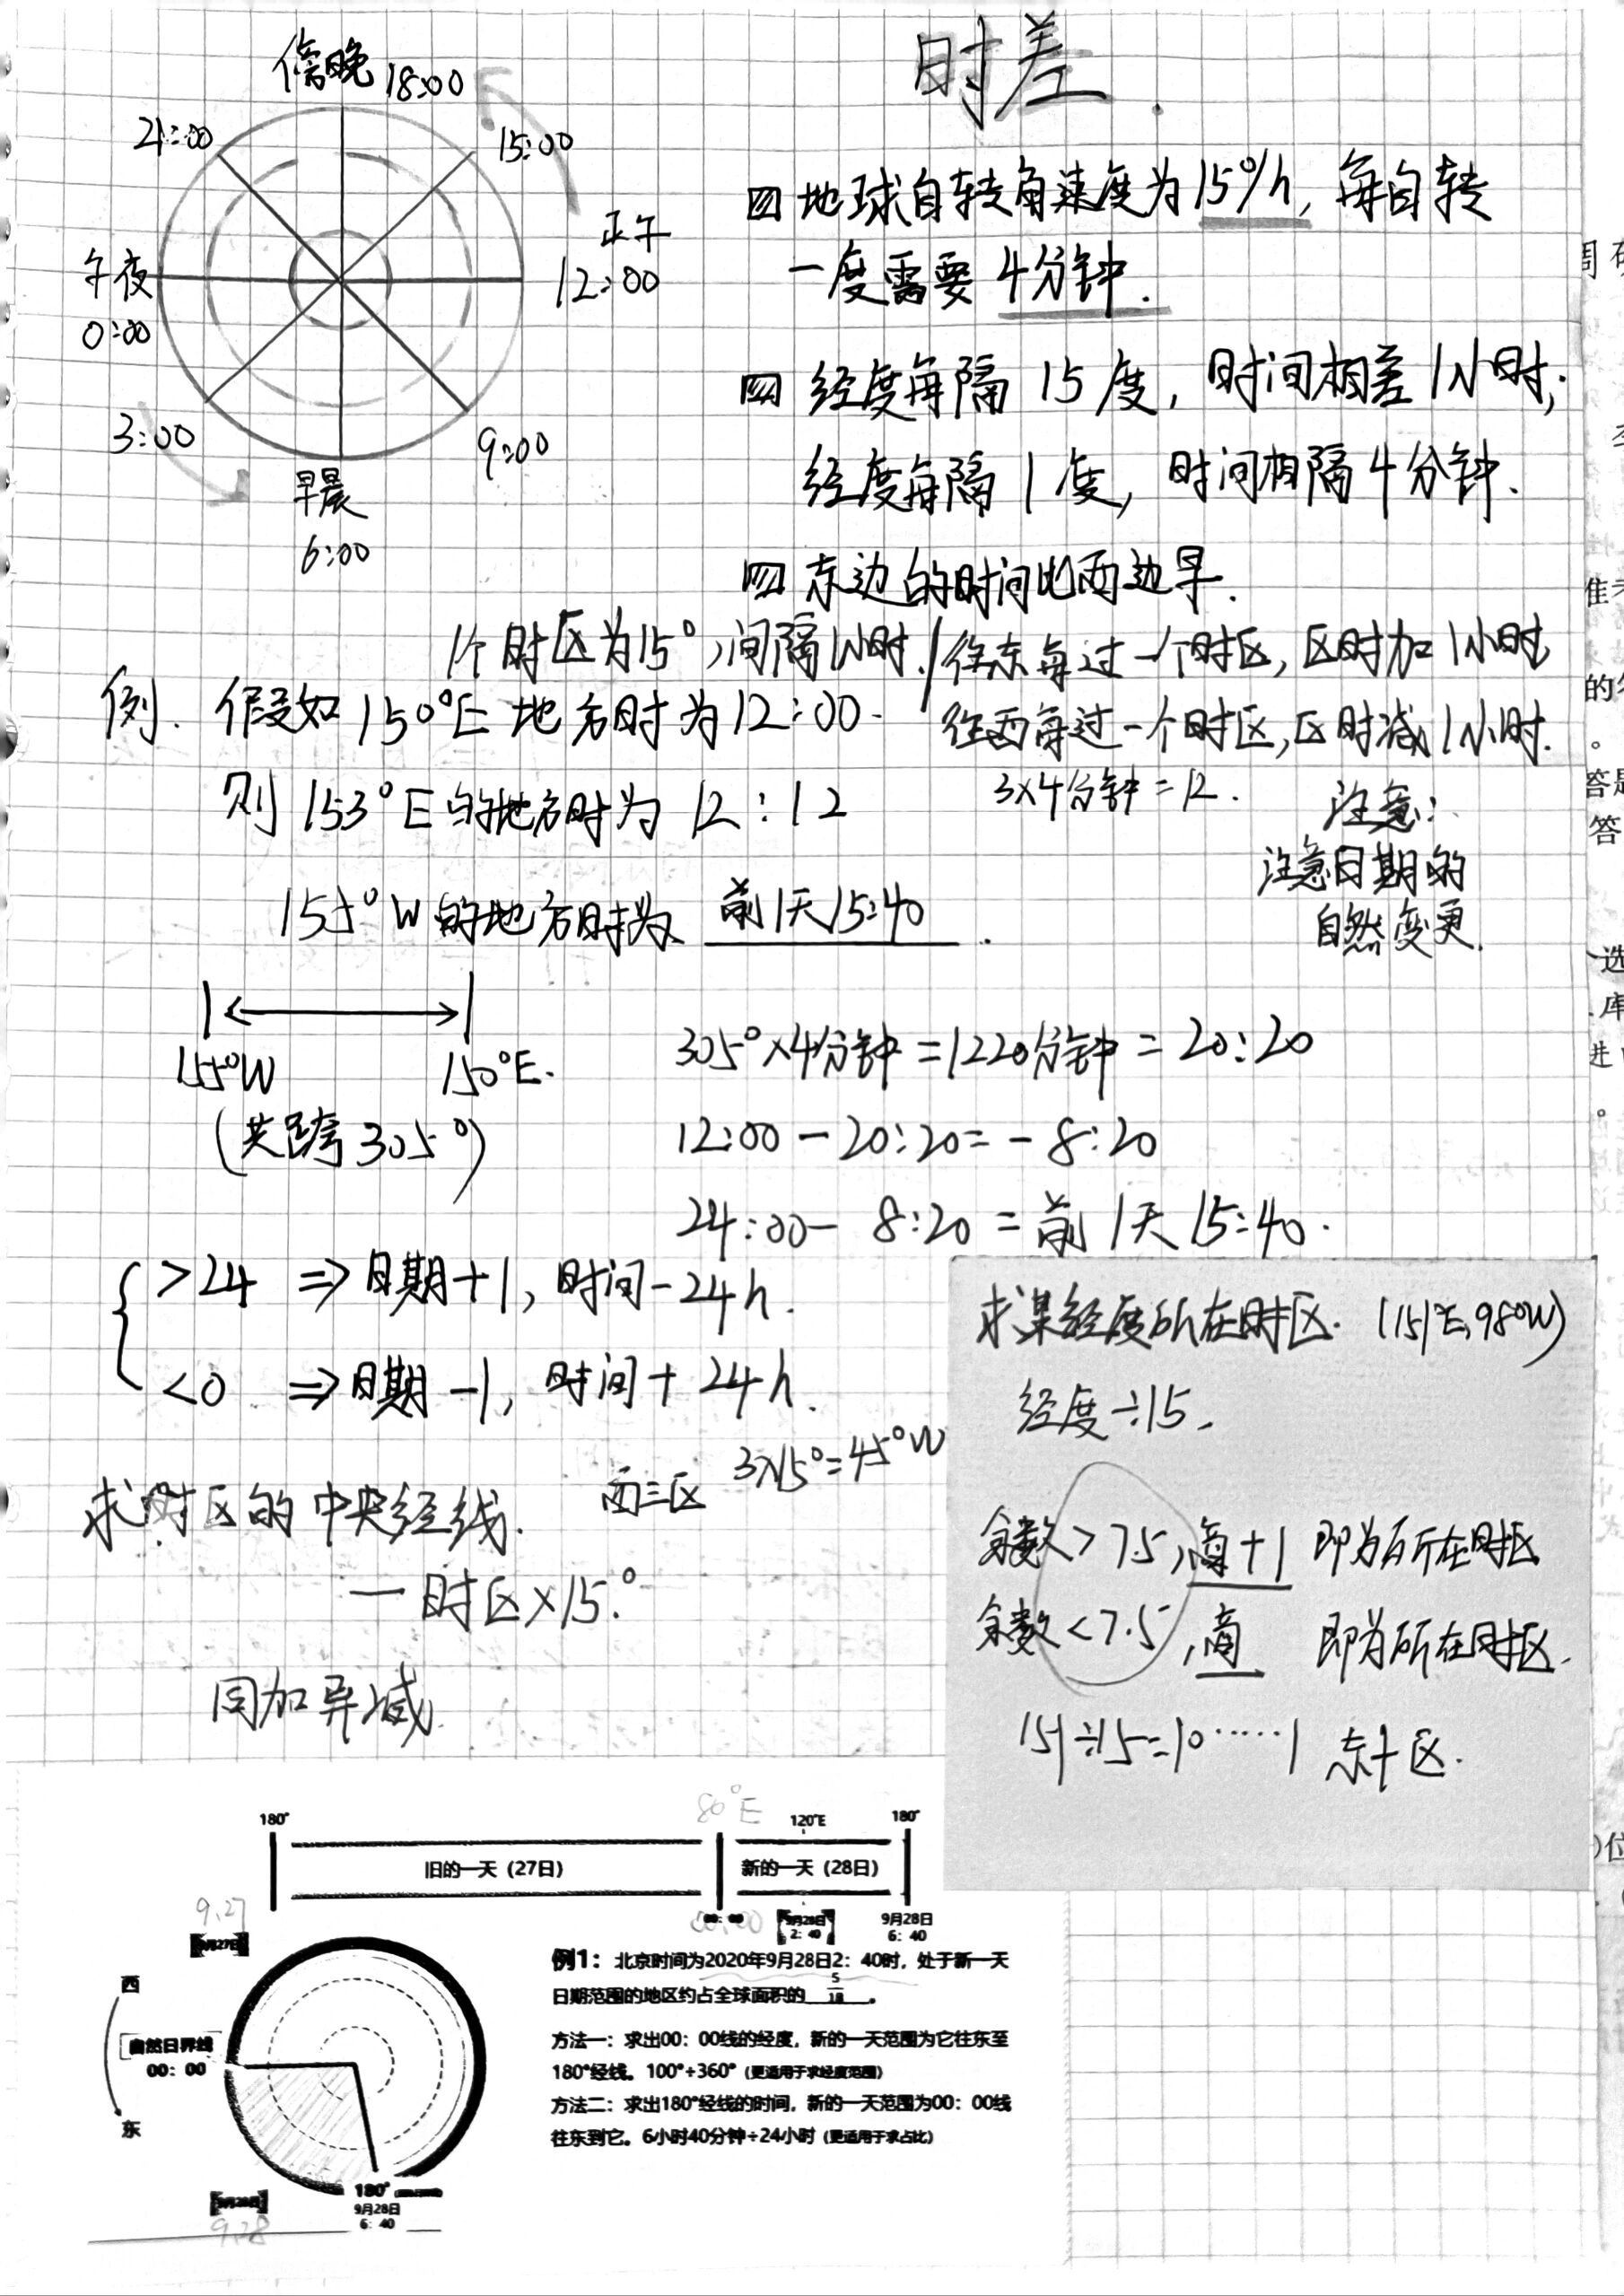 时差.
傍晚 18:00
21:00
15:00
正午
12:00
午夜
0:00
3:00
9:00
早晨
6:00
四 地球自转角速度为15°/h, 每自转
一度需要 4分钟.
四 经度每隔 15度, 时间相差1小时;
经度每隔 1度, 时间相隔4分钟.
四 东边的时间比西边早.
1个时区为15°,间隔1小时.
往东每过一个时区, 区时加1小时
往西每过一个时区, 区时减1小时.
例. 假如150°E 地方时为12:00.
则 153°E的地方时为 12:12
3×4分钟=12.
注意:
注意日期的
自然变更.
155°W的地方时为 前1天15:40.
155°W 150°E.
(共跨305°)
305°×4分钟=1220分钟=20:20
12:00-20:20=-8:20
24:00-8:20=前1天15:40.
>24 ⇒日期+1, 时间-24h.
<0 ⇒日期-1, 时间+24h.
求时区的中央经线.
西三区 3×15°=45°W
一时区×15°
同加异减.
求某经度所在时区. (151°E,98°W)
经度÷15.
余数>7.5,商+1 即为所在时区
余数<7.5,商 即为所在时区.
151÷15=10……1 东十区.
180° 80°E 120°E 180°
旧的一天（27日） 新的一天（28日）
00：00
9月28日
2：40
9月28日
6：40
9.27
9月27日
西
自然日界线
00：00
东
180°
9月28日
6：40
9月28日
9.28
例1：北京时间为2020年9月28日2：40时，处于新一天
日期范围的地区约占全球面积的 5/18 。
方法一：求出00：00线的经度，新的一天范围为它往东至
180°经线。100°÷360°（更适用于求经度范围）
方法二：求出180°经线的时间，新的一天范围为00：00线
往东到它。6小时40分钟÷24小时（更适用于求占比）